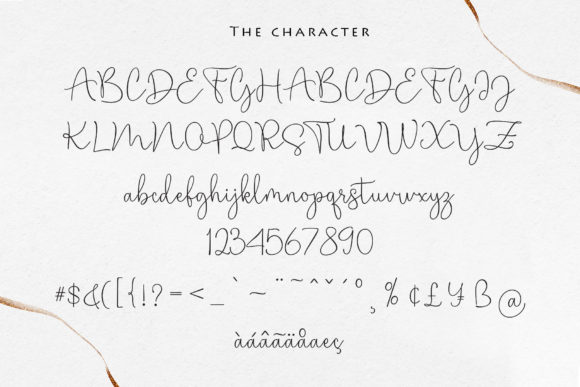 THE CHARACTER
ABCDEFGHABCDEFGIJ
KLMNOPQRSTUVWXYZ
abcdefghijklmnopqrstuvwxyz
1234567890
#$&([{!?=<_`~¨˜^ˇ´°¸%¢£¥ß@
àáâãäåaeç